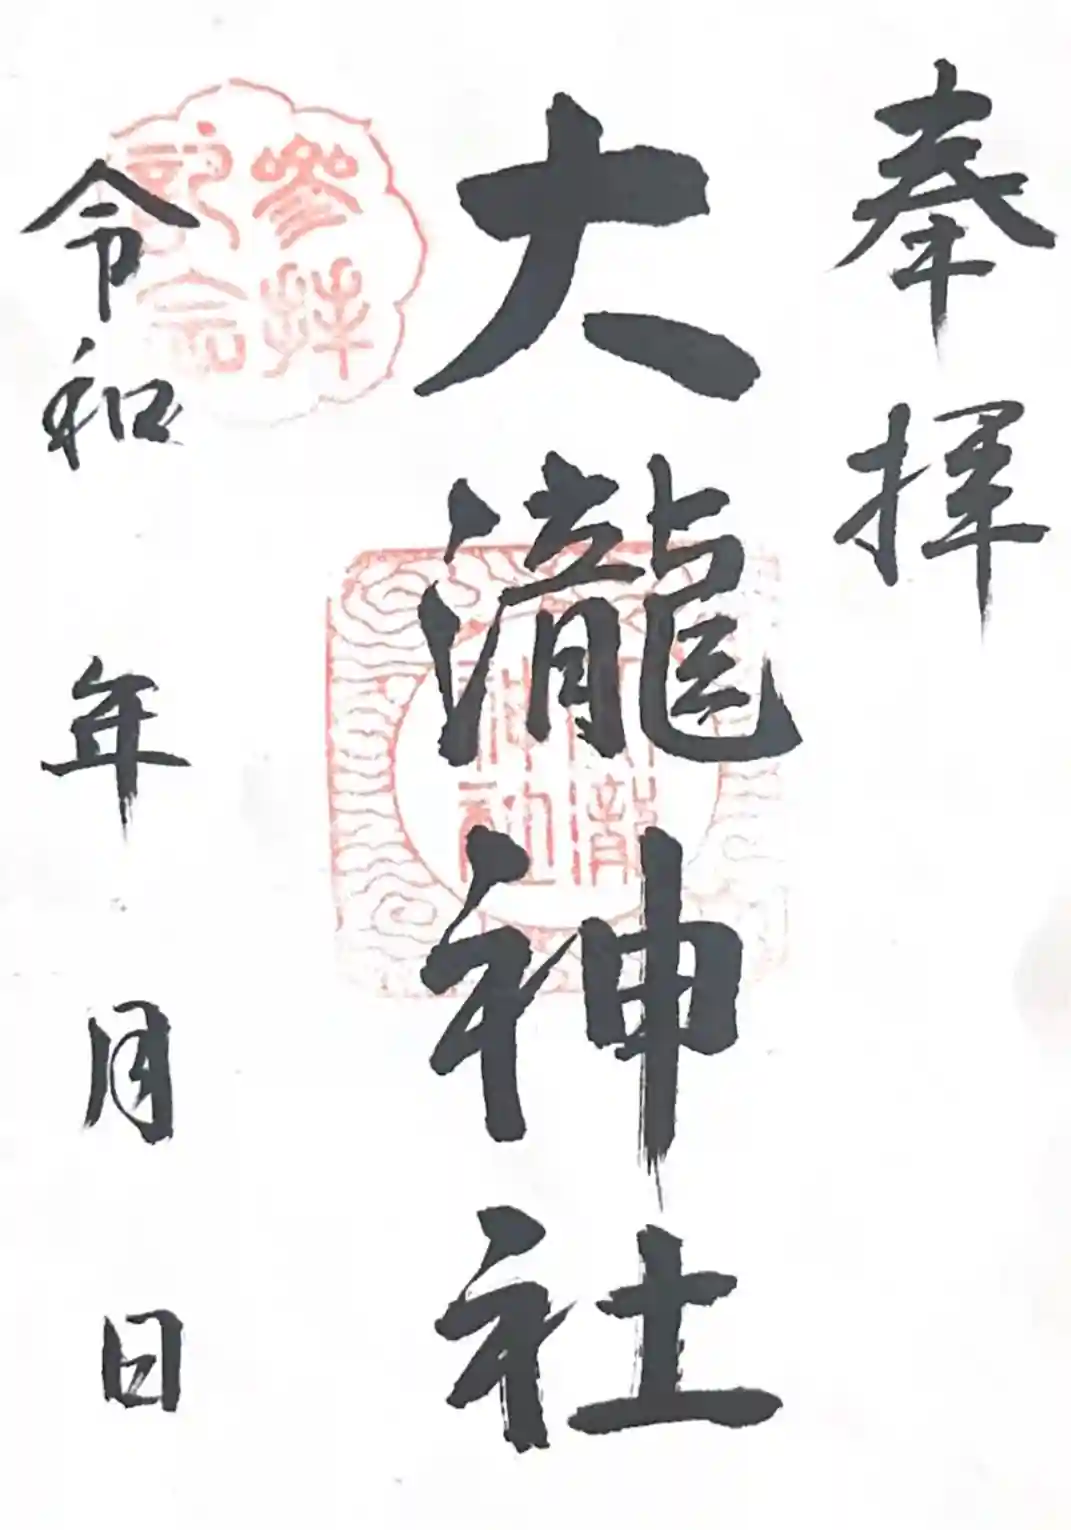 奉拝
大瀧神社
令和 年 月 日
参拝記念
大瀧神社